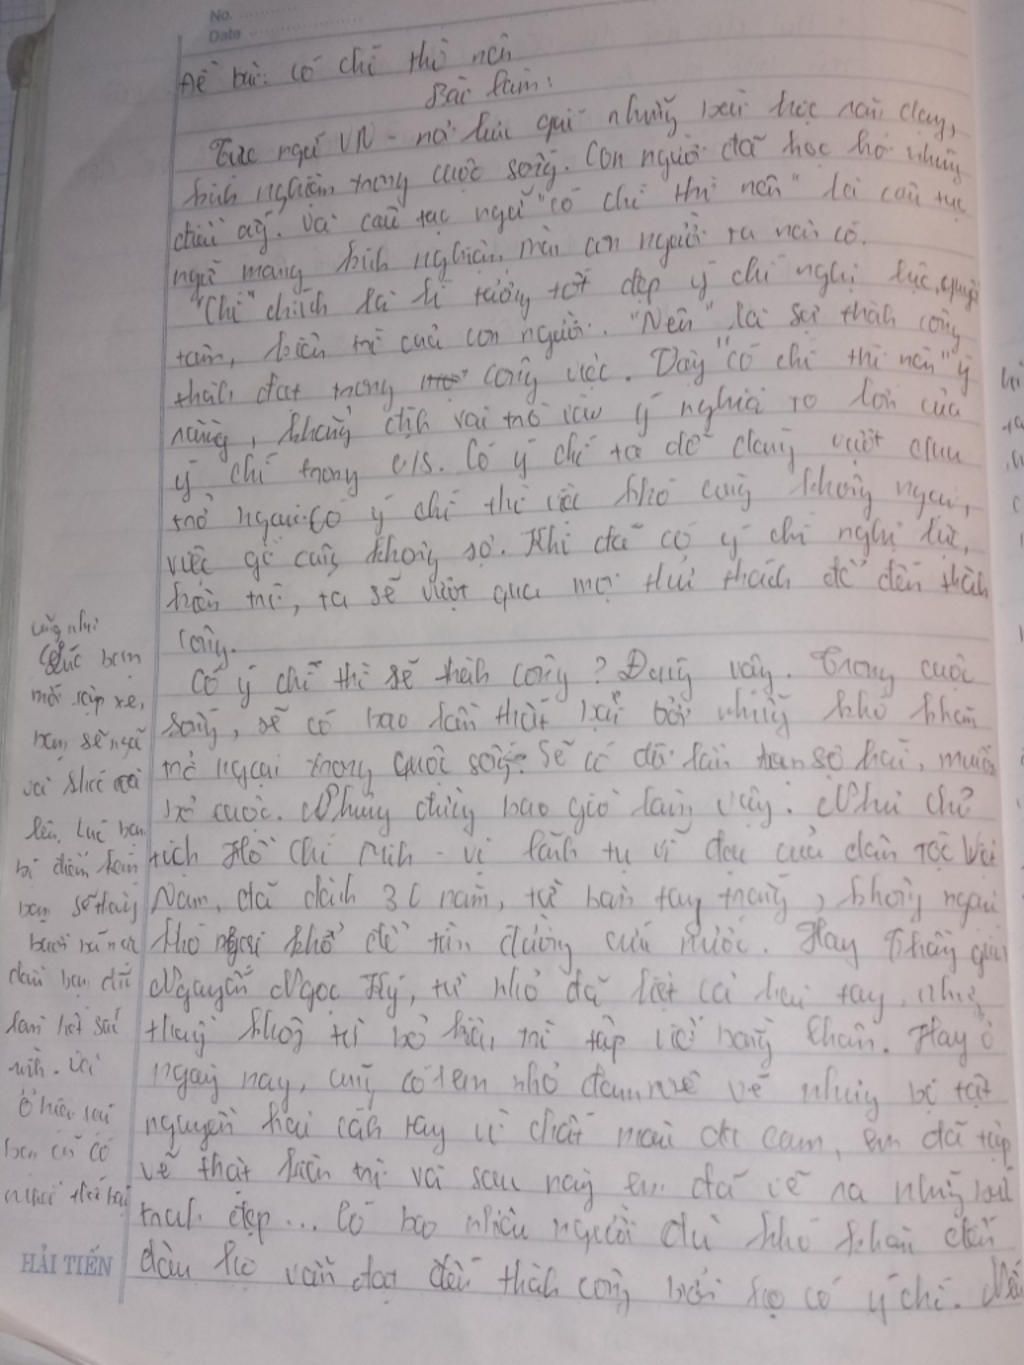 No.
Date
Đề bài: Có chí thì nên
Bài làm:
Tục ngữ VN - nơi lưu giữ những bài học răn dạy,
kinh nghiệm trong cuộc sống. Con người đã học hỏi những
điều ấy. Và câu tục ngữ "có chí thì nên" là câu tục
ngữ mang kinh nghiệm mà con người ta nên có.
"Chí" chính là lí tưởng tốt đẹp ý chí nghị lực, quyết
tâm, kiên trì của con người. "Nên" là sự thành công
thành đạt trong công việc. Vậy "có chí thì nên" ý
nói rằng, khẳng định vai trò ý nghĩa to lớn của
ý chí trong c/s. Có ý chí ta dễ dàng vượt qua
trở ngại. Có ý chí thì việc khó cũng không ngại,
việc gì cũng không sợ. Khi đã có ý chí nghị lực,
kiên trì, ta sẽ vượt qua mọi thử thách để đến thành
công.
Có ý chí thì sẽ thành công? Đúng vậy. Trong cuộc
sống, sẽ có bao lần thất bại bởi những khó khăn
trở ngại trong cuộc sống. Sẽ có đôi lần bạn sợ hãi, muốn
bỏ cuộc. Nhưng đừng bao giờ làm vậy. Như chủ
tịch Hồ Chí Minh - vị lãnh tụ vĩ đại của dân tộc Việt
Nam, đã dành 30 năm, từ bàn tay trắng, không ngại
khó ngại khổ để tìm đường cứu nước. Hay Thầy giáo
Nguyễn Ngọc Ký, từ nhỏ đã liệt cả hai tay, nhưng
thầy không từ bỏ kiên trì tập viết bằng chân. Hay ở
ngày nay, cũng có em nhỏ đam mê vẽ nhưng bị tật
nguyền hai cánh tay vì chất màu da cam, em đã tập
vẽ thật kiên trì và sau này em đã vẽ ra những bức
tranh đẹp... Có bao nhiêu người dù khó khăn đến
đâu họ vẫn đạt đến thành công bởi họ có ý chí. Nếu
cũng như
Lúc bạn
mới tập xe,
bạn sẽ ngã
lên. Lúc bạn
bị điểm kém
bạn sẽ thấy
buồn
dẫu bạn đã
làm hết sức
mình. Và
bạn cũ có
HẢI TIẾN